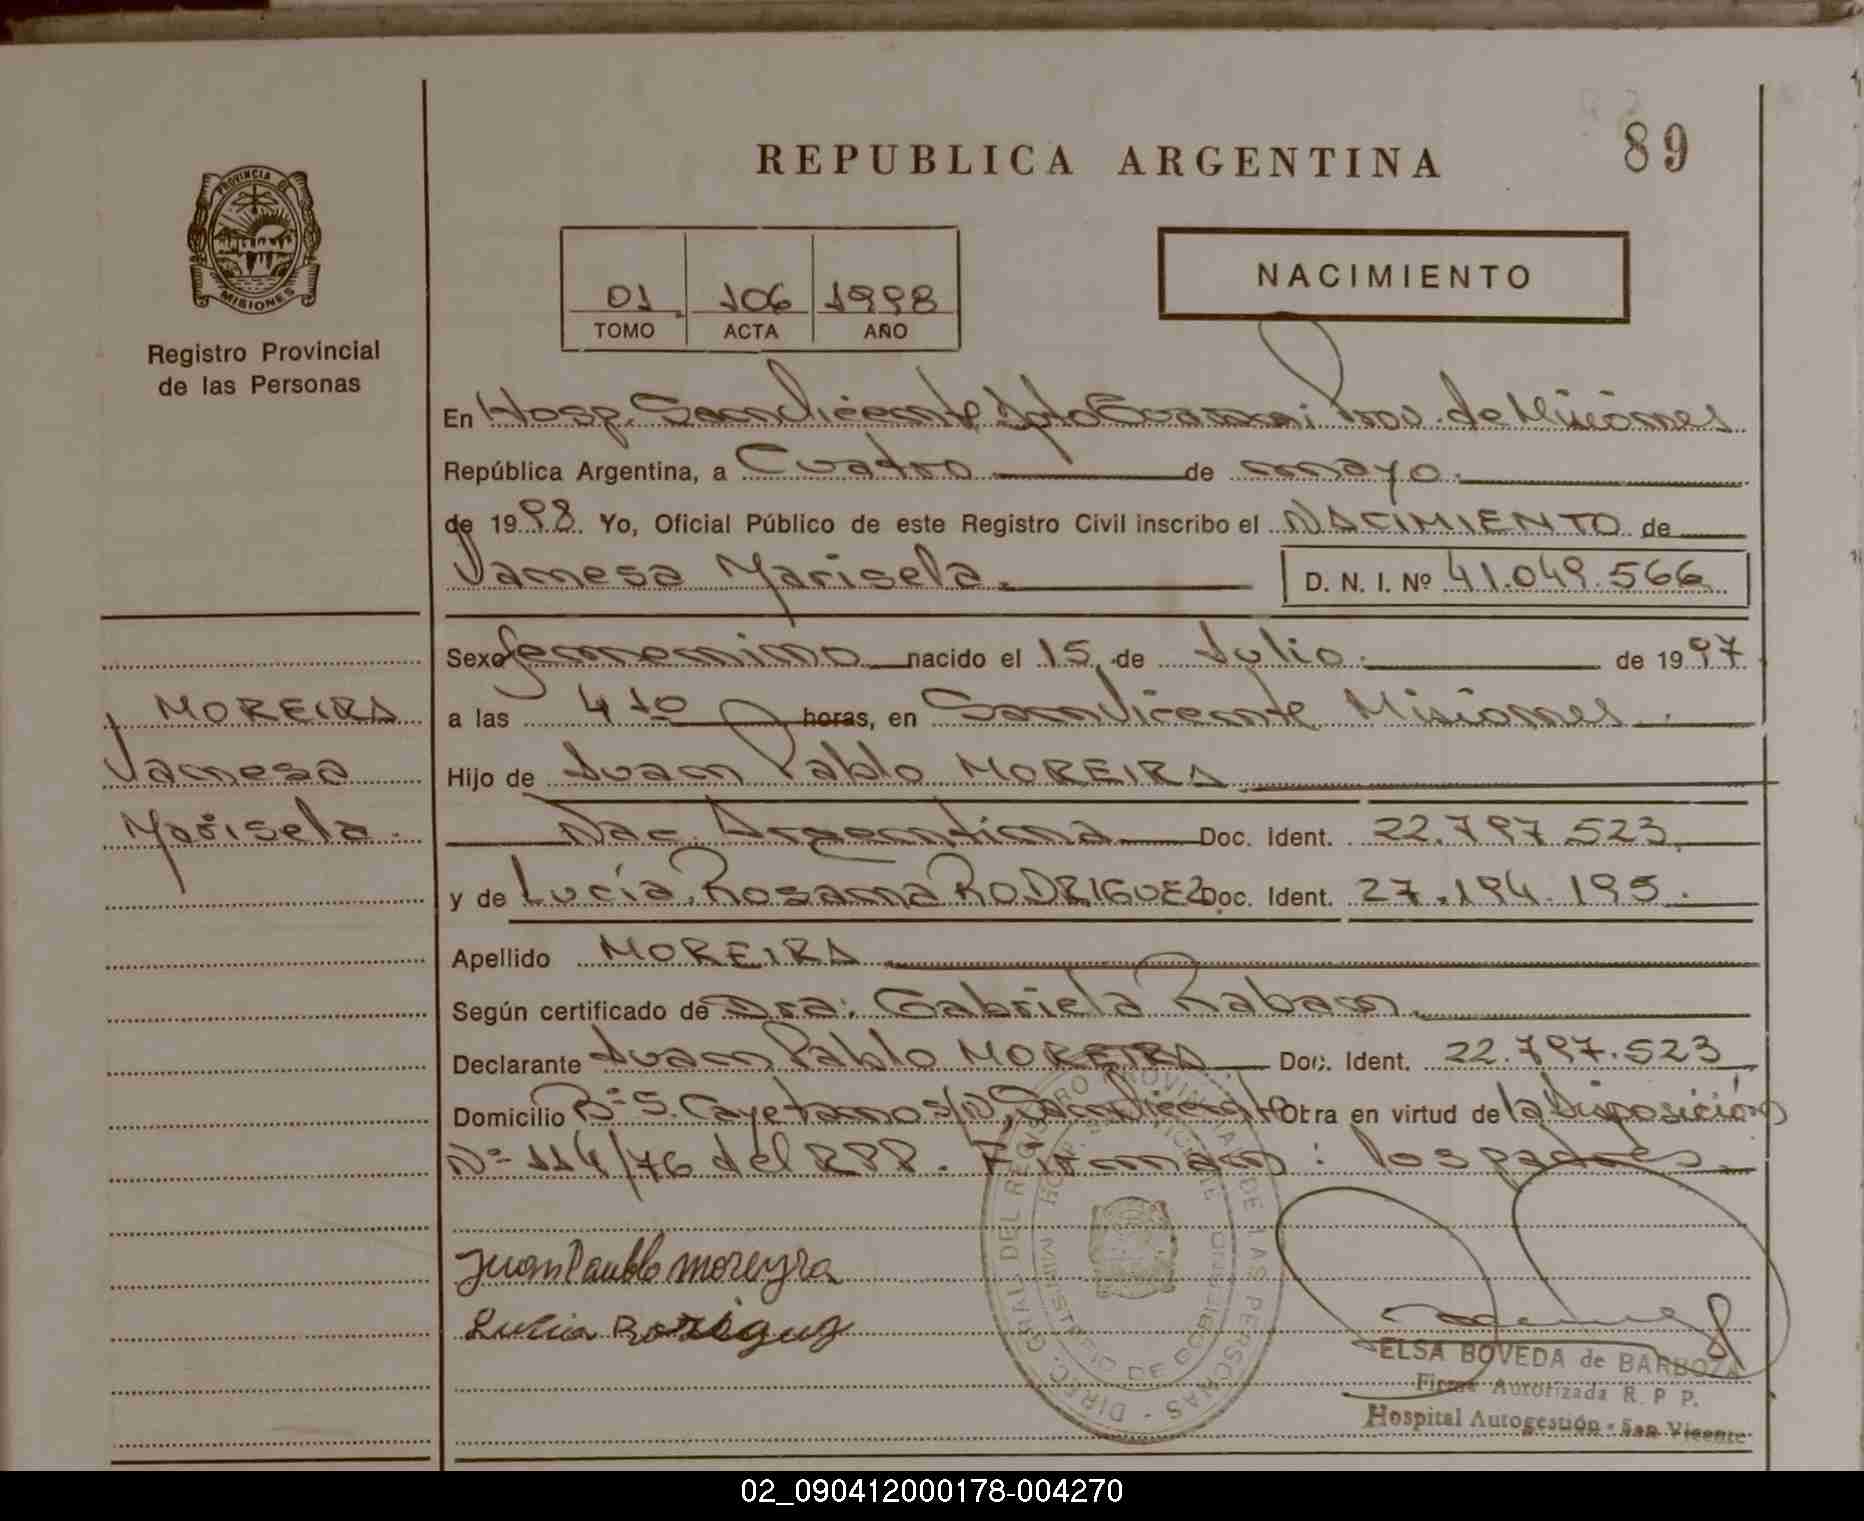 REPUBLICA ARGENTINA
89
PROVINCIA DE
MISIONES
Registro Provincial
de las Personas
01 106 1998
TOMO ACTA AÑO
NACIMIENTO
En Hosp. San Vicente Dpto Guaraní Prov. de Misiones
República Argentina, a Cuatro de mayo.
de 1998. Yo, Oficial Público de este Registro Civil inscribo el NACIMIENTO de
Vanesa Marisela. D. N. I. Nº 41.049.566
Sexo femenino nacido el 15 de Julio de 1997
a las 4 10 horas, en San Vicente Misiones
Hijo de Juan Pablo MOREIRA
Nac. Argentina Doc. Ident. 22.797.523
y de Lucía Rosana RODRIGUEZ Doc. Ident. 27.194.195.
Apellido MOREIRA
Según certificado de Dra: Gabriela Raban
Declarante Juan Pablo MOREIRA Doc. Ident. 22.797.523
Domicilio Bº S. Cayetano s/N, San Vicente Otra en virtud de la Disposición
Nº 114/76 del RPP. Firman: los padres
MOREIRA
Vanesa
Marisela.
Juan Paublo moreyra
Lucia Roriguz
DIREC. GRAL DEL REGISTRO PROVINCIAL DE LAS PERSONAS
MINISTERIO DE GOBIERNO
ELSA BOVEDA de BARBOZA
Firma Autorizada R. P. P.
Hospital Autogestión - San Vicente
02_090412000178-004270